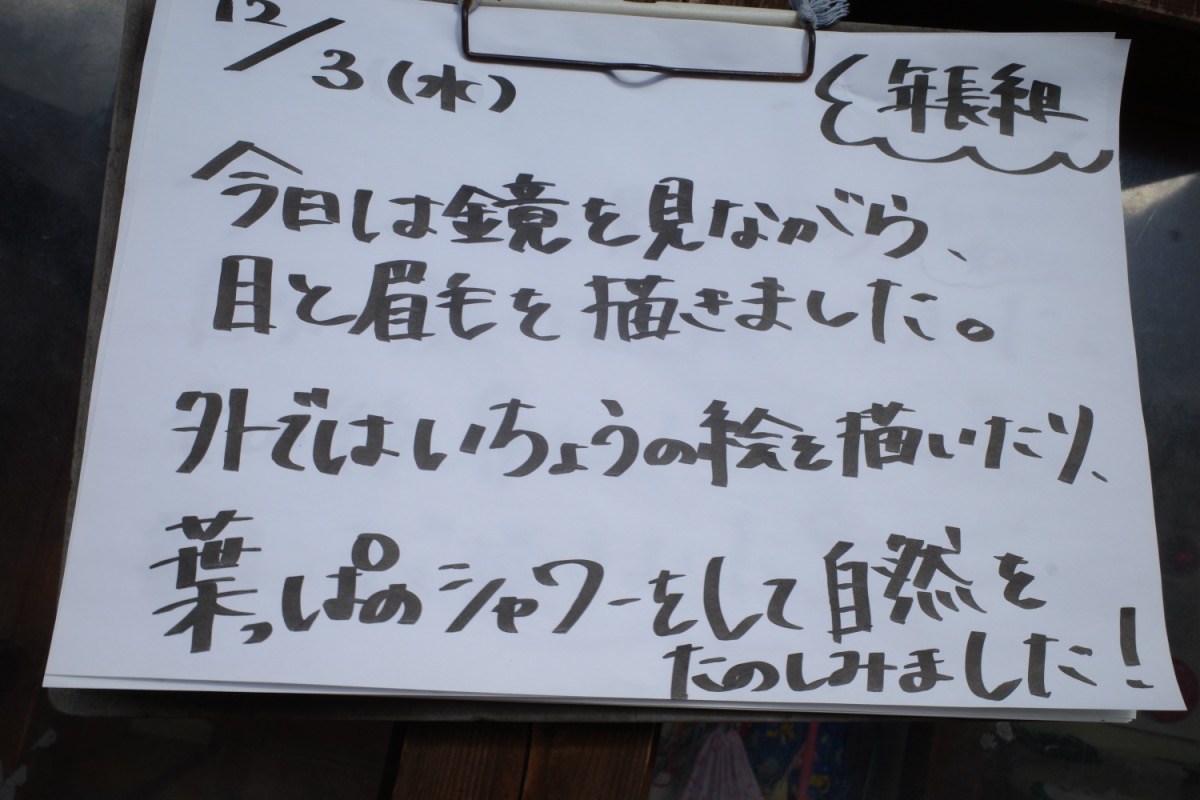 12/3(水)
年長組
今日は鏡を見ながら、
目と眉毛を描きました。
外ではいちょうの絵を描いたり、
葉っぱのシャワーをして自然を
たのしみました!